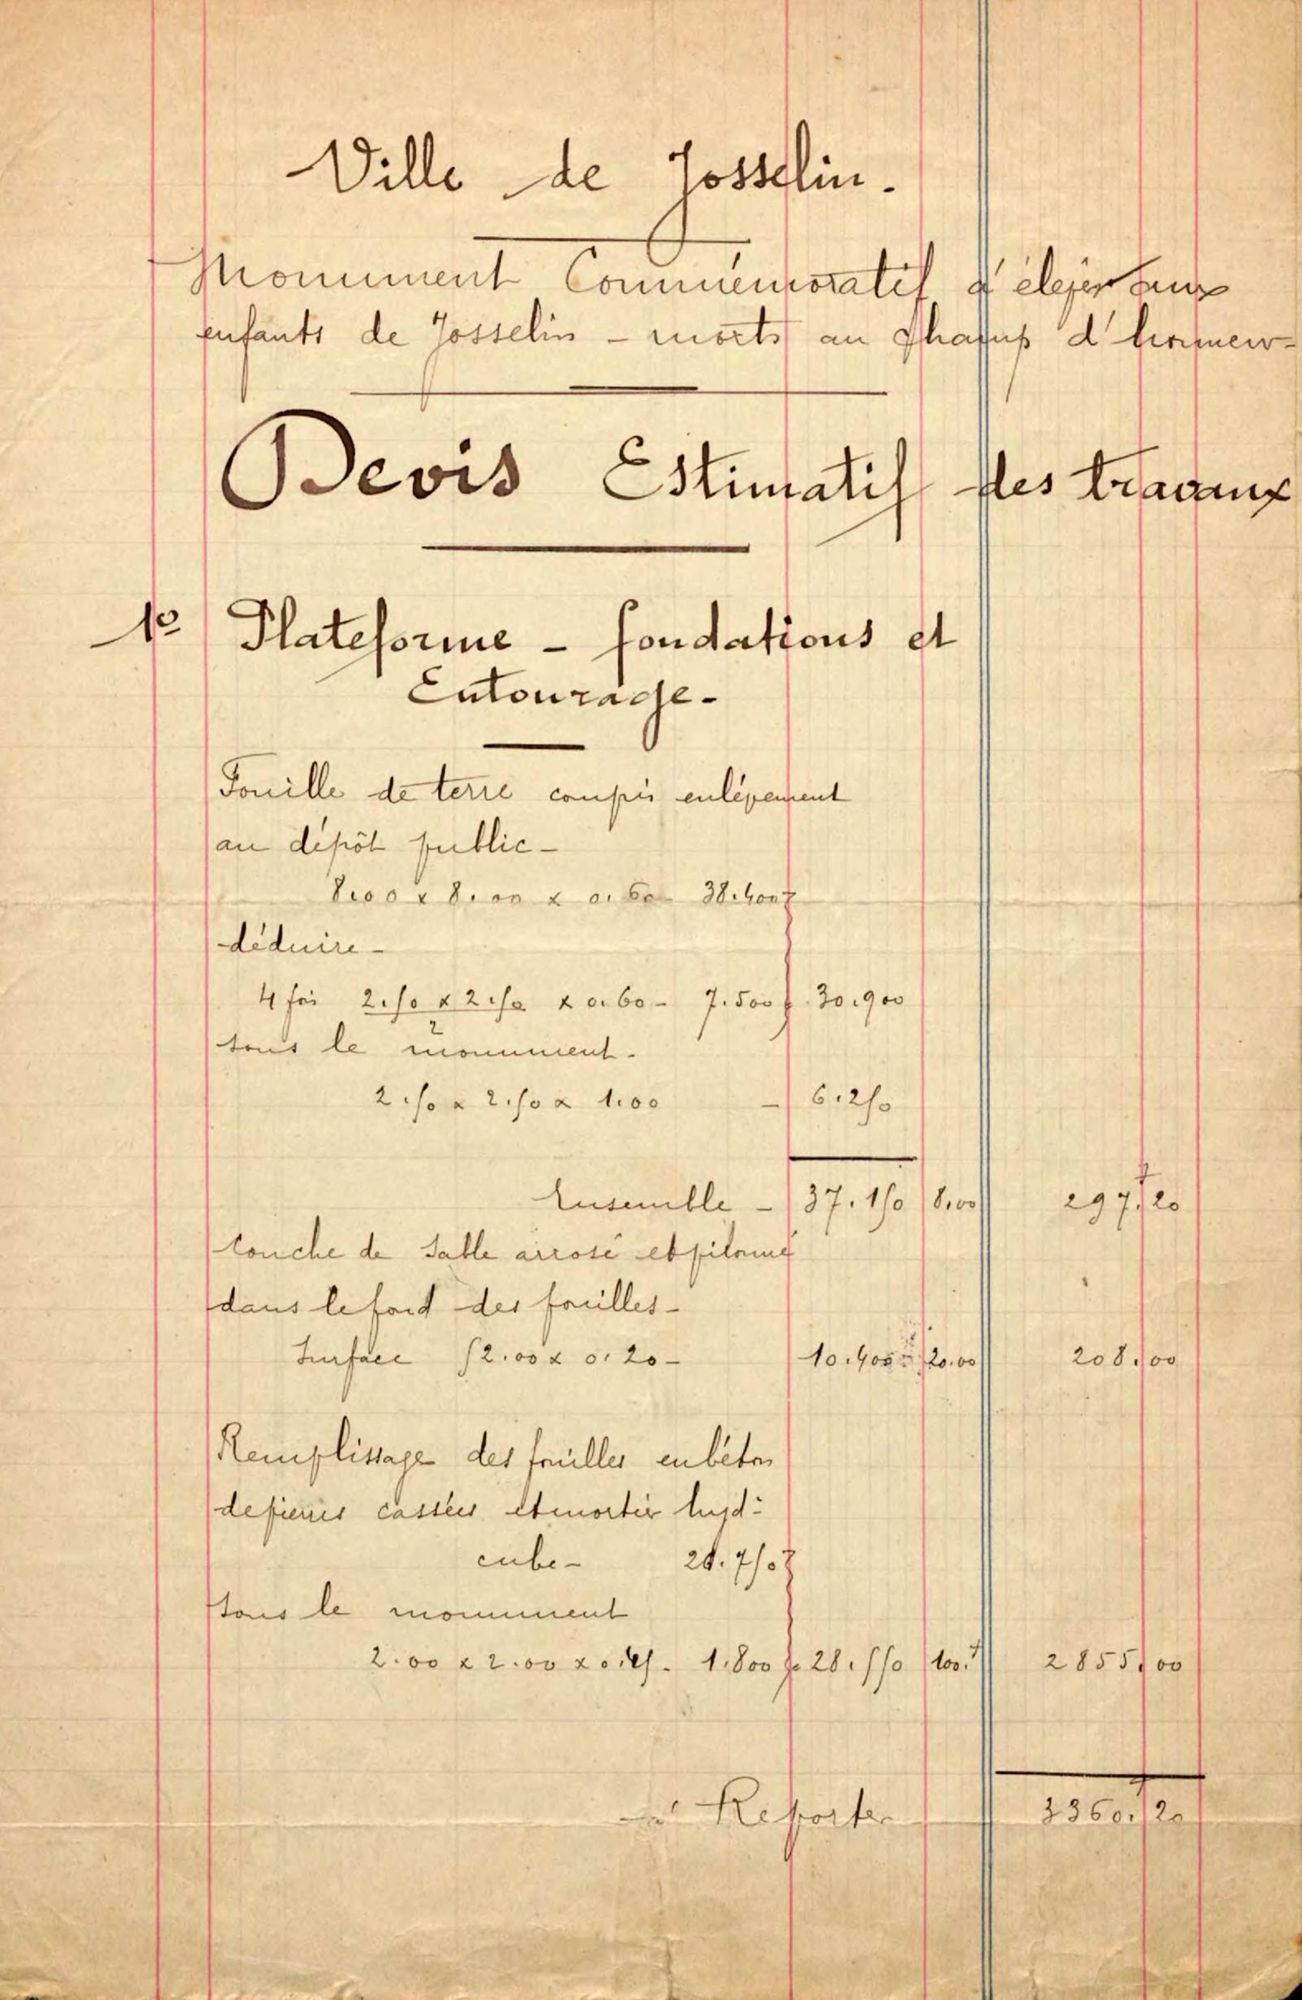 Ville de Josselin.
Monument Commémoratif d'élejer aux
enfants de Josselin - morts au Champ d'honneur-
Devis Estimatif des travaux
1º Plateforme - fondations et
Entourage-
Fouille de terre compris enlèvement
au dépôt public-
8.00 x 8.00 x 0.60 - 38.400
déduire-
4 fois 2.50 x 2.50 x 0.60 - 7.500 30.900
2
sous le monument.
2.50 x 2.50 x 1.00 - 6.250
Ensemble - 37.150 8.00 297f,20
Couche de sable arrosé et pilonné
dans le fond des fouilles-
Surface 52.00 x 0.20 - 10.400 20.00 208.00
Remplissage des fouilles en béton
de pierres cassées et mortier hyd:
cube-
sous le monument
2.00 x 2.00 x 0.45. 1.800 28.550 100.f 2855,00
à Reporter 3360.20